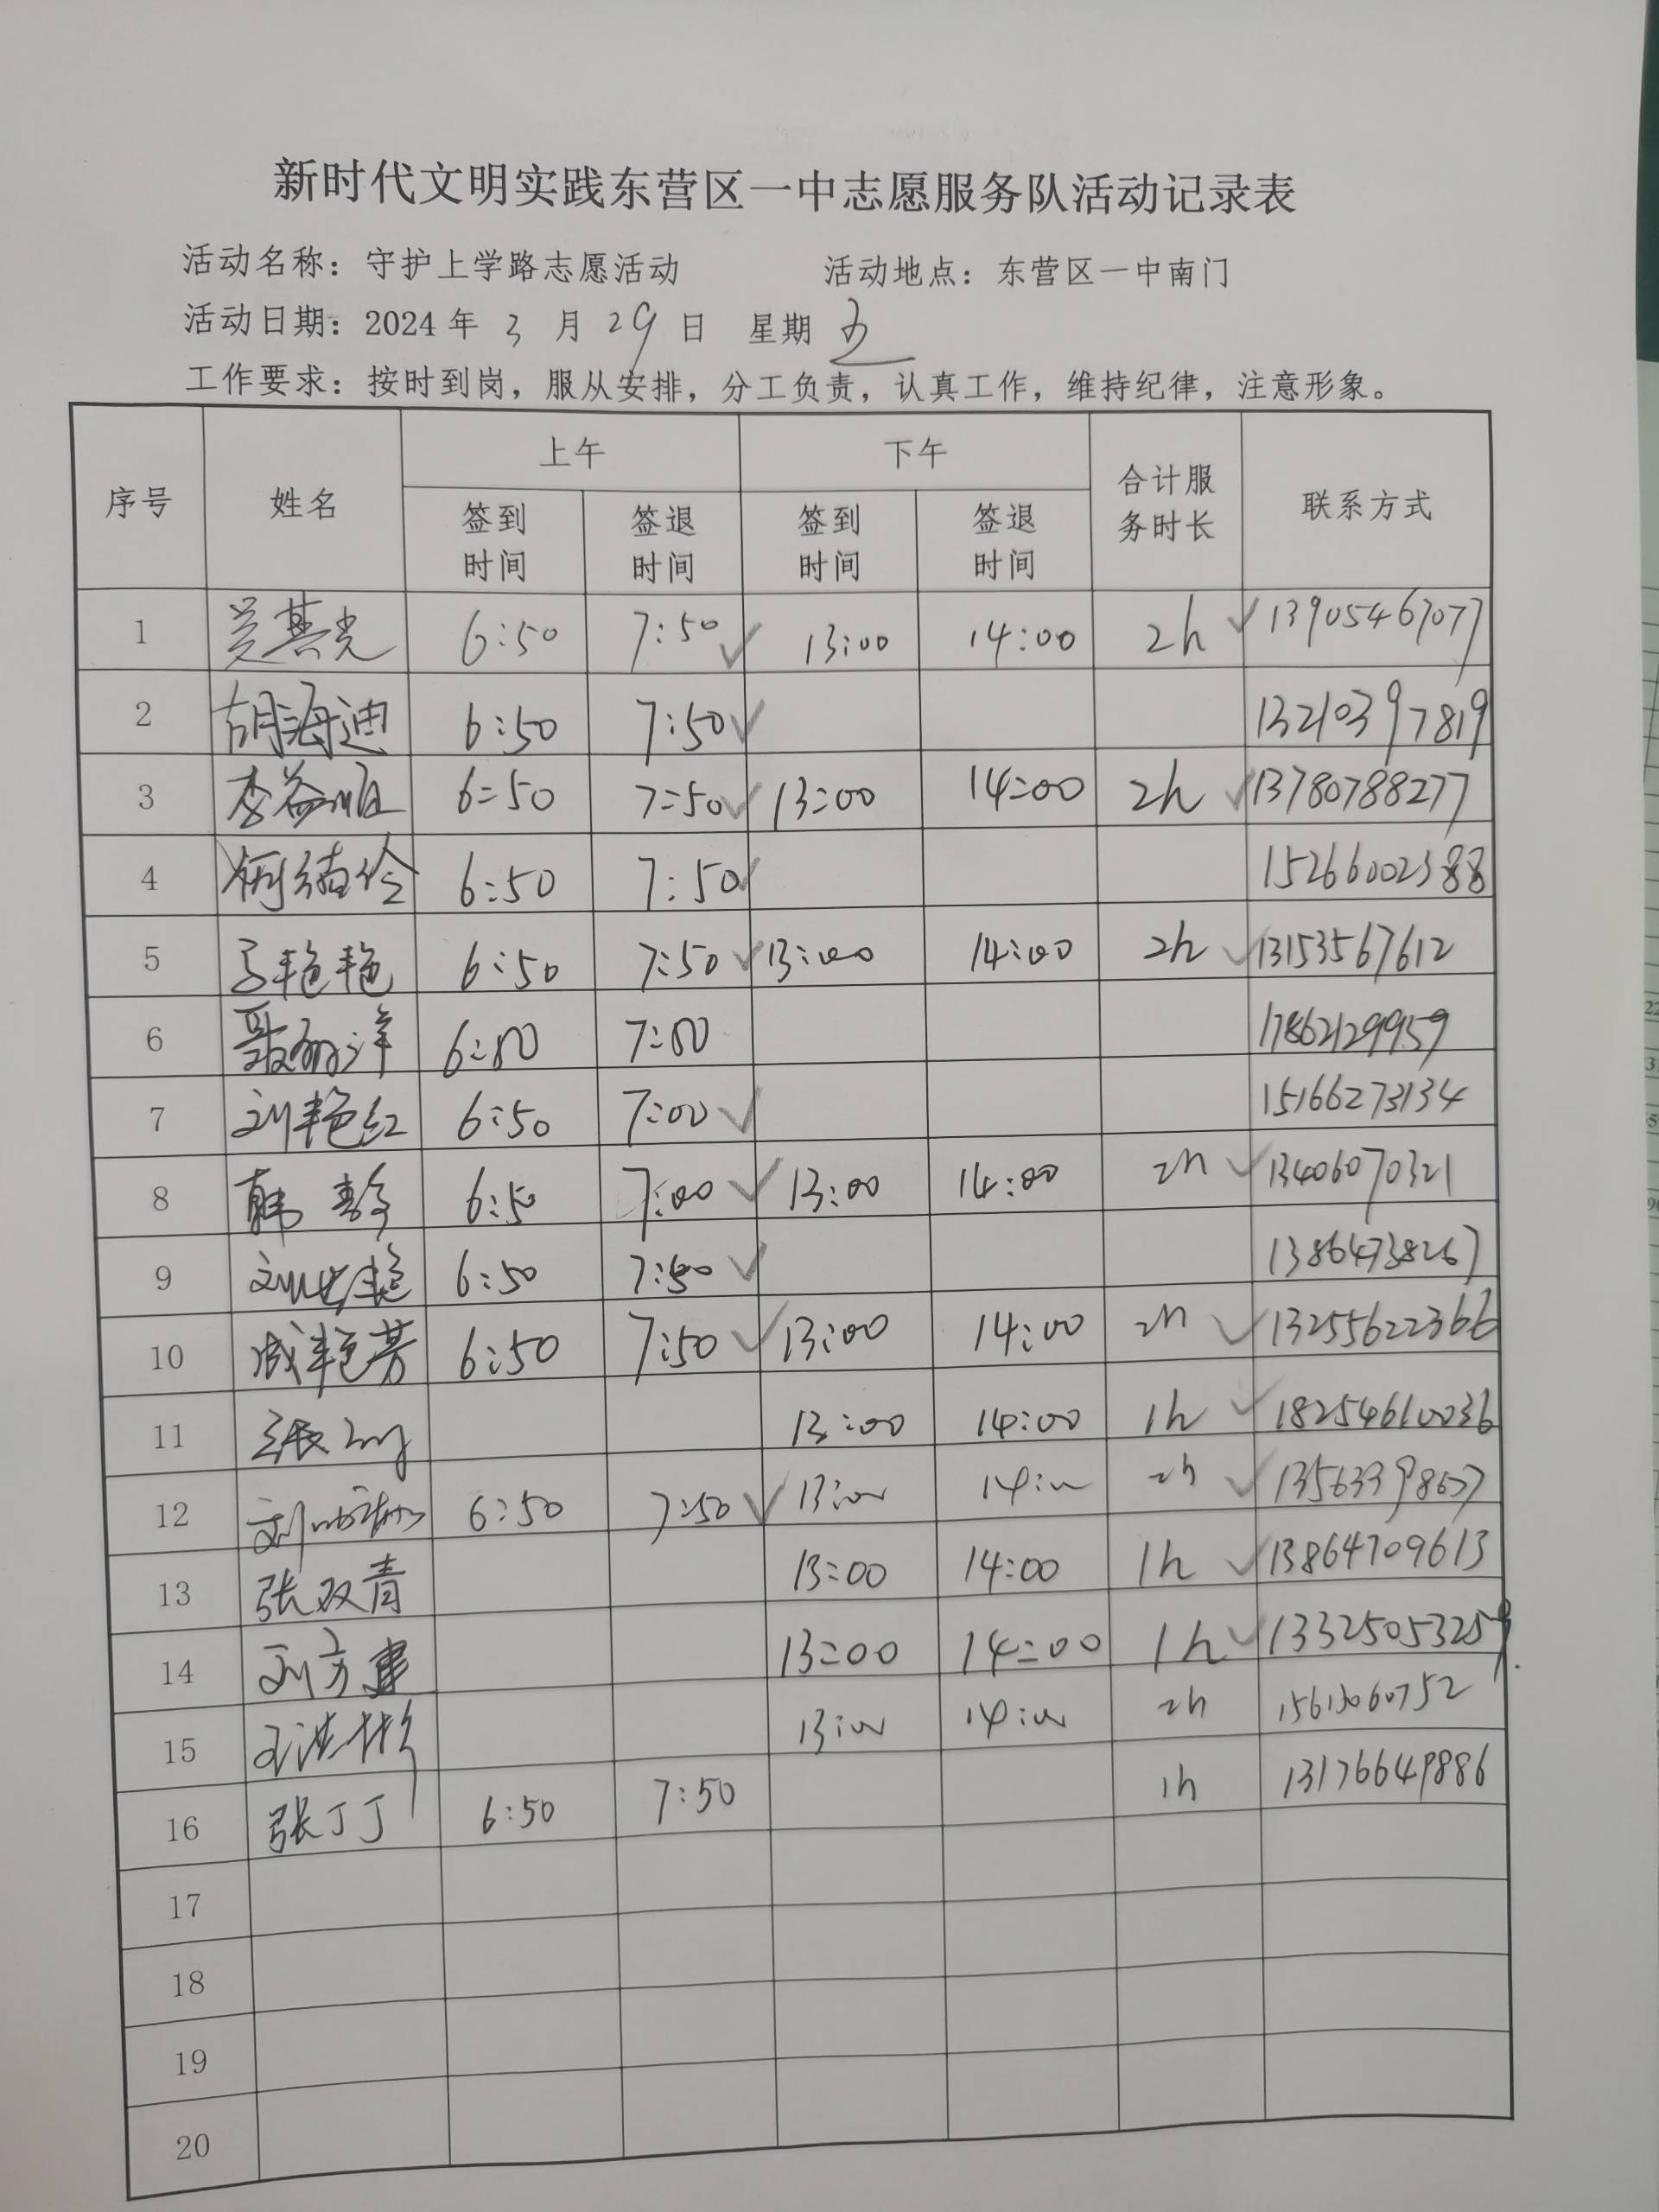 新时代文明实践东营区一中志愿服务队活动记录表
活动名称：守护上学路志愿活动 活动地点：东营区一中南门
活动日期：2024年 3 月 29 日 星期 五
工作要求：按时到岗，服从安排，分工负责，认真工作，维持纪律，注意形象。
序号 姓名 上午 下午 合计服务时长 联系方式
签到时间 签退时间 签到时间 签退时间
1 6:50 7:50 ✓ 13:00 14:00 2h ✓ 13905467077
2 胡海迪 6:50 7:50 ✓ 13210397819
3 李益顺 6:50 7:50 ✓ 13:00 14:00 2h ✓ 13780788277
4 6:50 7:50 ✓ 15266002388
5 马艳艳 6:50 7:50 ✓ 13:00 14:00 2h ✓ 13153567612
6 6:50 7:50 17862129959
7 刘艳红 6:50 7:00 ✓ 15166273134
8 韩 6:50 7:00 ✓ 13:00 14:00 2h ✓ 13406070321
9 6:50 7:50 ✓ 13864738267
10 艳芳 6:50 7:50 ✓ 13:00 14:00 2h ✓ 13255622366
11 13:00 14:00 1h ✓ 18254610036
12 6:50 7:50 ✓ 13:00 14:00 2h ✓ 13563398607
13 张双青 13:00 14:00 1h ✓ 13864709613
14 刘方建 13:00 14:00 1h ✓ 13325053259
15 13:00 14:00 2h 15613060752
16 张丁丁 6:50 7:50 1h 13176649886
17
18
19
20